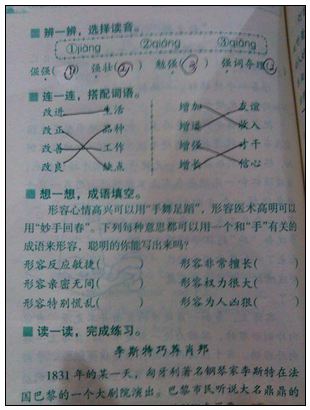 辨一辨，选择读音。
①jiàng ②qiáng ③qiǎng
倔强(①) 强壮(②) 勉强(③) 强词夺理(
连一连，搭配词语。
改进 生活 增加 友谊
改正 品种 增进 收入
改善 工作 增强 才干
改良 缺点 增长 信心
想一想，成语填空。
形容心情高兴可以用“手舞足蹈”，形容医术高明可以
用“妙手回春”。下列每种意思都可以用一个和“手”有关的
成语来形容，聪明的你能写出来吗？
形容反应敏捷( ) 形容非常擅长( )
形容亲密无间( ) 形容权力很大( )
形容特别慌乱( ) 形容为人凶狠( )
读一读，完成练习。
李斯特巧荐肖邦
1831年的某一天，匈牙利著名钢琴家李斯特在法
国巴黎的一个大剧院演出。巴黎市民听说大名鼎鼎的